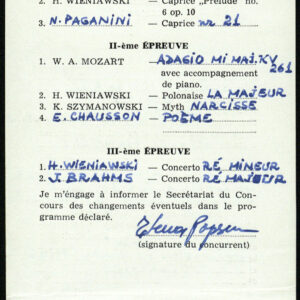 2. H. WIENIAWSKI — Caprice "Prélude" no.
6 op. 10
3. N. PAGANINI — Caprice nr 21
II-ème ÉPREUVE
1. W. A. MOZART — ADAGIO MI MAJ. KV 261
avec accompagnement
de piano.
2. H. WIENIAWSKI — Polonaise LA MAJEUR
3. K. SZYMANOWSKI — Myth NARCISSE
4. E. CHAUSSON — POÈME
III-ème ÉPREUVE
1. H. WIENIAWSKI — Concerto RÉ MINEUR
2. J. BRAHMS — Concerto RÉ MAJEUR
Je m'engage à informer le Secrétariat du Con-
cours des changements éventuels dans le pro-
gramme déclaré.
(signature du concurrent)